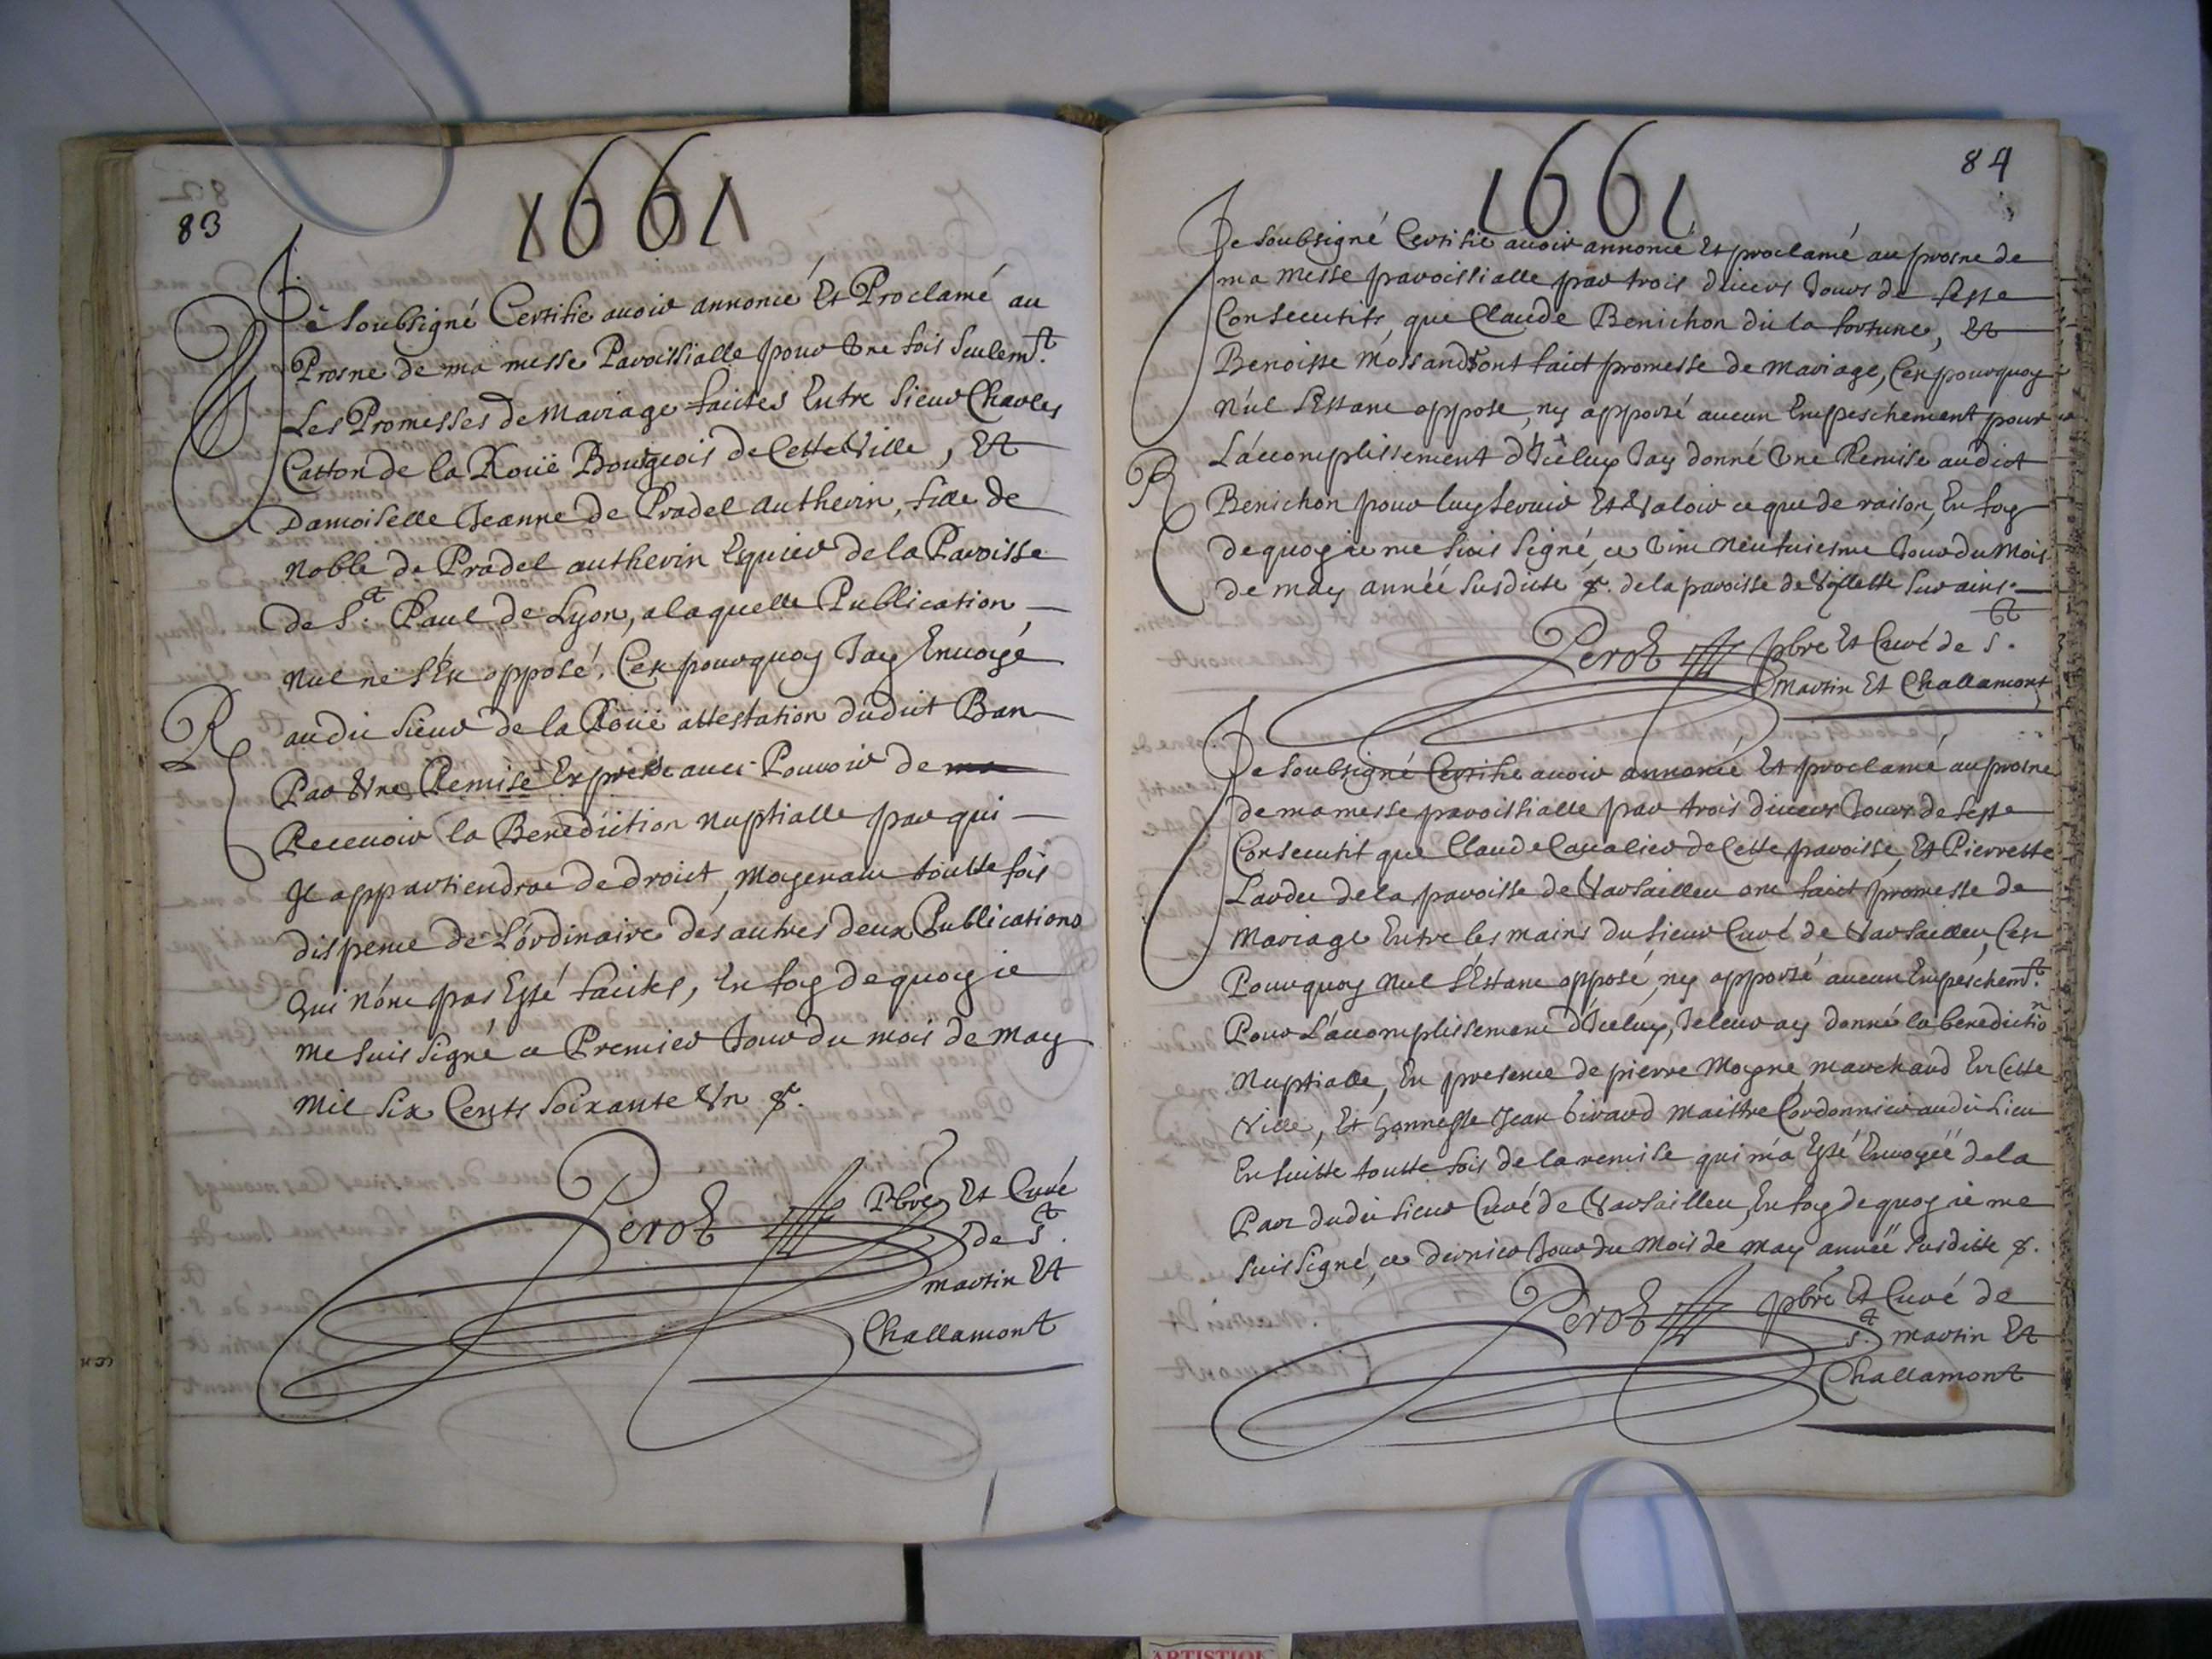 83
1661
Je Soubsigné Certifie avoir annoncé Et Proclamé au
Prosne de ma messe Paroissialle pour Une fois Seulemt.
Les Promesses de Mariage faictes Entre Sieur Charles
Catton de la Roüe Bourgeois de Cette Ville, Et
Damoiselle Jeanne de Pradel authevin, fille de
Noble de Pradel authevin Equier de la Paroisse
de St. Paul de Lyon, a laquelle Publication
Nul ne s'Est opposé, C'est pourquoy J'ay Envoyé
R
audit Sieur de la Roüe attestation dudict Ban
Par Une Remise Expresse avec Pouvoir de
Recevoir la Benediction nuptialle par qui
Il appartiendrae de droict, Moyenant toutte fois
dispence de L'ordinaire des autres deux Publications
Qui n'ont pas Esté faictes, En foy de quoy ie
me Suis Signé ce Premier Jour du mois de May
Mil Six Cents Soixante Un &c.
Perot Pbre Et Curé
de St.
Martin Et
Challamont
84
1661
Je Soubsigné Certifie avoir annoncé Et proclamé au prosne de
ma messe paroissialle par trois divers Jours de feste
Consecutifs, que Claude Benichon dit la fortune, Et
Benoiste Mossand ont faict promesse de Mariage, C'est pourquoy
Nul s'Estant opposé, ny apporté aucun Empeschement pour
L'accomplissement d'Iceluy J'ay donné Une Remise audict
R
Benichon pour luy servir Et Valoir ce que de raison, En foy
de quoy ie me suis Signé, ce Vint Neufuiesme Jour du Mois
de may année susdicte &c. de la paroisse de Villette sur ains.
Perot pbre Et Curé de St.
Martin Et Challamont
Je Soubsigné Certifie avoir annoncé Et proclamé au prosne
de ma messe paroissialle par trois divers Jours de feste
Consecutif que Claude Cavalier de Cette paroisse, Et Pierrette
Lardet de la paroisse de Varsailleu ont faict promesse de
Mariage Entre les mains du Sieur Curé de Varsailleu, C'est
Pourquoy Nul s'Estant opposé, ny apporté aucun Empeschemt.
Pour L'accomplissement d'Iceluy, Je leur ay donné la benedictio n
Nuptialle, En presence de pierre Moyne marchand En Cette
Ville, Et honneste Jean Girard Maistre Cordonnier audit Lieu
En suitte toutte fois de la remise qui m'a Esté Envoyéë de la
Part dudit Sieur Curé de Varsailleu, En foy de quoy ie me
suis Signé, ce dernier Jour du Mois de May annéë susditte &c.
Perot pbre Et Curé de
St. Martin Et
Challamont